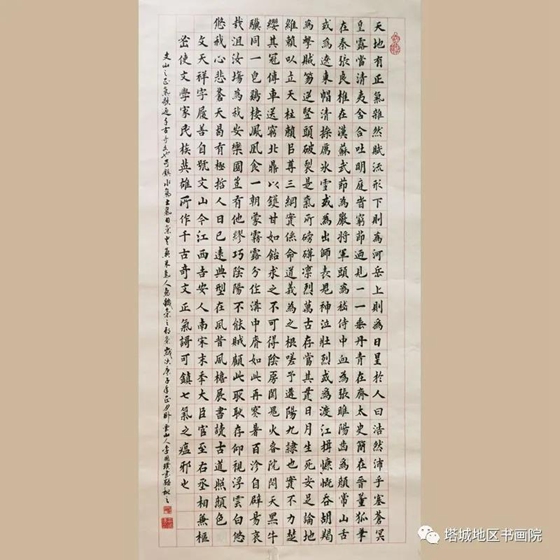 天地有正氣雜然賦流形下則為河岳上則為日星於人曰浩然沛乎塞蒼冥
皇路當清夷含和吐明庭時窮節乃見一一垂丹青在齊太史簡在晉董狐筆
在秦張良椎在漢蘇武節為嚴將軍頭為嵇侍中血為張睢陽齒為顏常山舌
或為遼東帽清操厲冰雪或為出師表鬼神泣壯烈或為渡江楫慷慨吞胡羯
為擊賊笏逆豎頭破裂是氣所磅礴凜烈萬古存當其貫日月生死安足論地
維賴以立天柱賴以尊三綱實係命道義為之根嗟予遘陽九隸也實不力楚
纓其冠傳車送窮北鼎以鑊甘如飴求之不可得陰房闃鬼火春院閟天黑牛
驥同一皂雞棲鳳凰食一朝蒙霧露分作溝中瘠如此再寒暑百沴自辟易哀
哉沮洳場為我安樂國豈有他繆巧陰陽不能賊顧此耿耿存仰視浮雲白悠
悠我心悲蒼天曷有極哲人日已遠典型在夙昔風檐展書讀古道照顏色
文天祥字履善自號文山今江西吉安人南宋末季大臣官至右丞相兼樞
密使文學家民族英雄所作千古奇文正氣歌可鎮七氣之瘟邪也
文山之正氣歌
塔城地区书画院